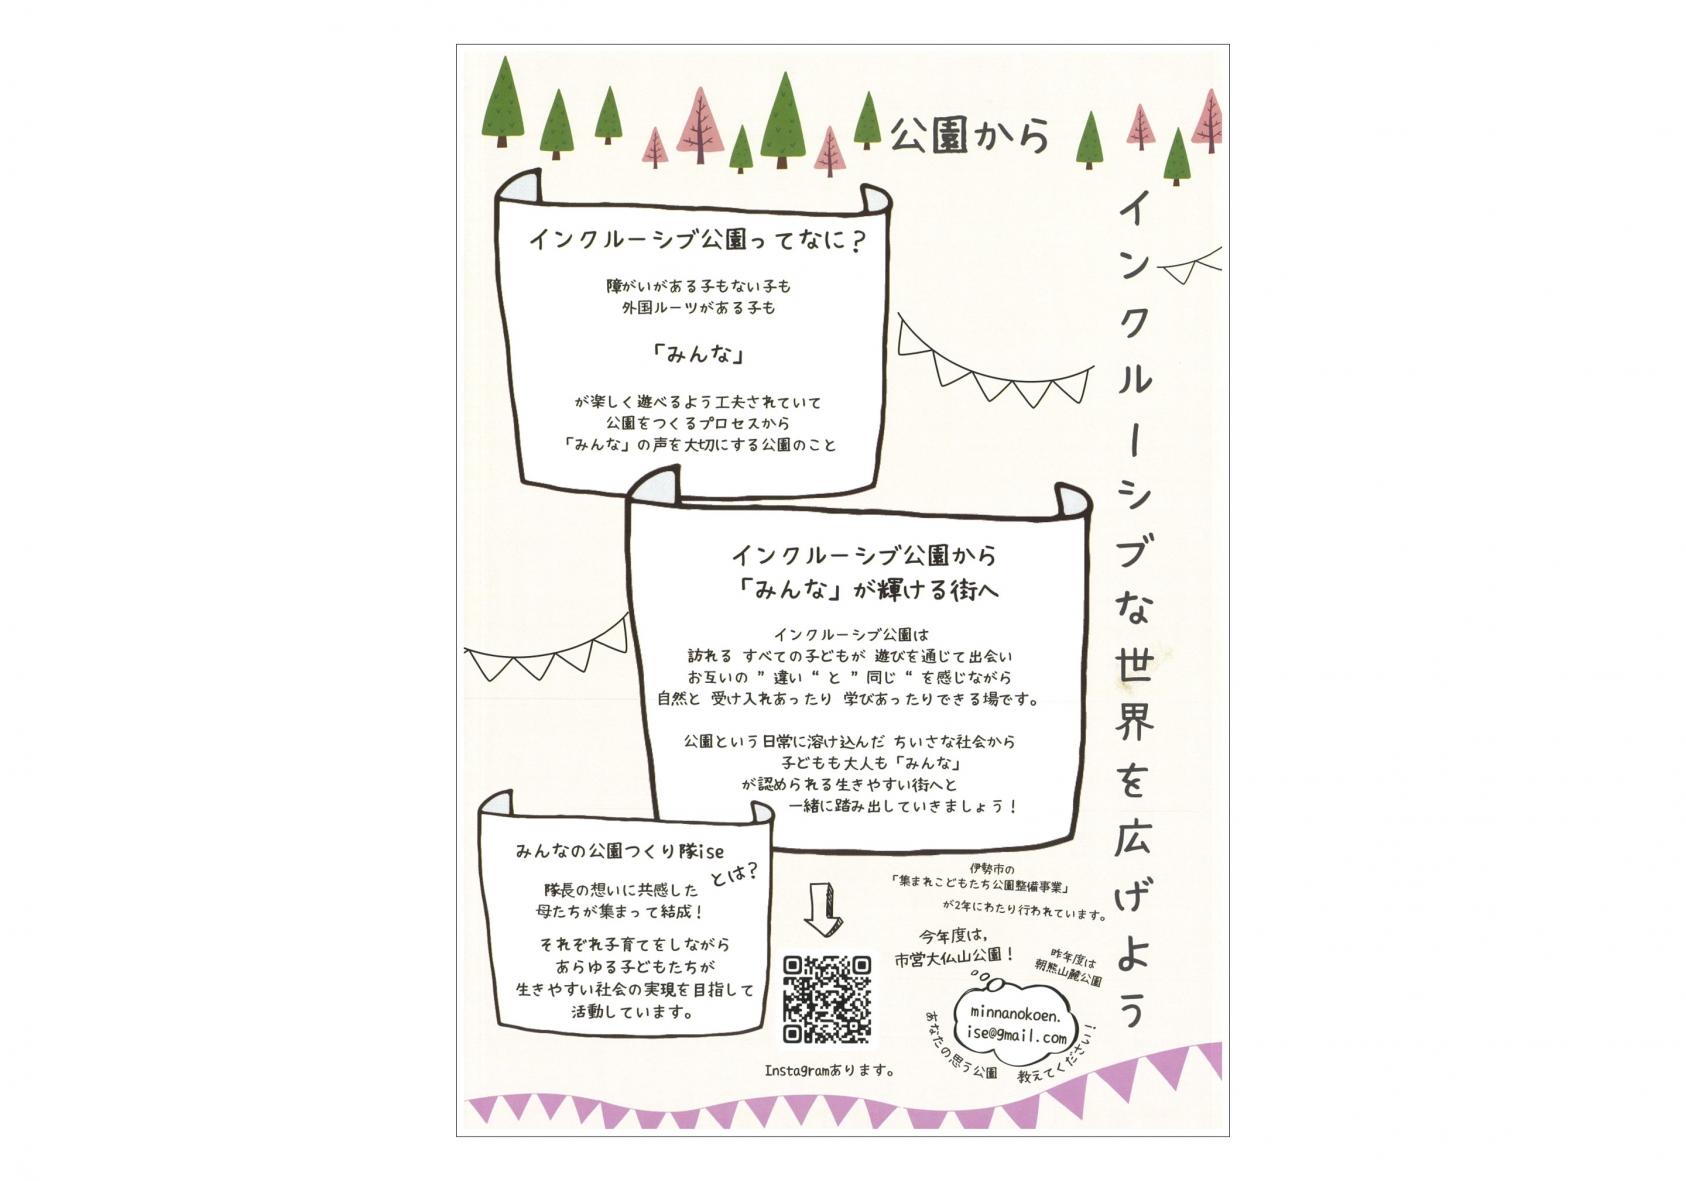 公園から
インクルーシブな世界を広げよう
インクルーシブ公園ってなに？
障がいがある子もない子も
外国ルーツがある子も
「みんな」
が楽しく遊べるよう工夫されていて
公園をつくるプロセスから
「みんな」の声を大切にする公園のこと
インクルーシブ公園から
「みんな」が輝ける街へ
インクルーシブ公園は
訪れる すべての子どもが 遊びを通じて出会い
お互いの ” 違い “ と ” 同じ “ を感じながら
自然と 受け入れあったり 学びあったりできる場です。
公園という日常に溶け込んだ ちいさな社会から
子どもも大人も「みんな」
が認められる生きやすい街へと
一緒に踏み出していきましょう！
みんなの公園つくり隊ise
とは？
隊長の想いに共感した
母たちが集まって結成！
それぞれ子育てをしながら
あらゆる子どもたちが
生きやすい社会の実現を目指して
活動しています。
Instagramあります。
伊勢市の
「集まれこどもたち公園整備事業」
が2年にわたり行われています。
今年度は，
市営大仏山公園！
昨年度は
朝熊山麓公園
minnanokoen.
ise@gmail.com
あなたの思う公園
教えてください！